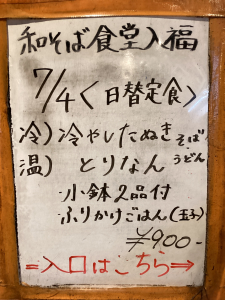 和そば食堂入福
7/4〈日替定食〉
冷)冷やしたぬきそば
温)とりなんうどん
小鉢2品付
ふりかけごはん(玉子)
¥900-
=入口はこちら⇒